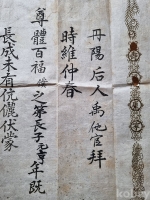 丹陽后人禹他官拜
時維仲春
尊體百福僕之第長子年既
長成未有伉儷伏蒙
kobay